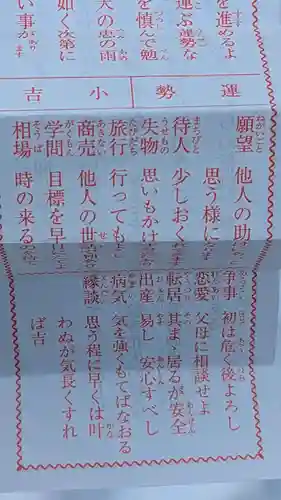 を進めるよ
運ぶ運勢な
を慎んで勉
天の恵の雨
如く次第に
い事が
運勢 小吉
願望 他人の助
思う様に
待人 少しおく
失物 思いもかけ
旅行 行っても
商売 他人の世
学問 目標を早
相場 時の来る
争事 初は危く後よろし
恋愛 父母に相談せよ
転居 其まゝ居るが安全
出産 易し 安心すべし
病気 気を強くもてばなおる
縁談 思う程に早くは叶
わぬが気長くすれ
ば吉